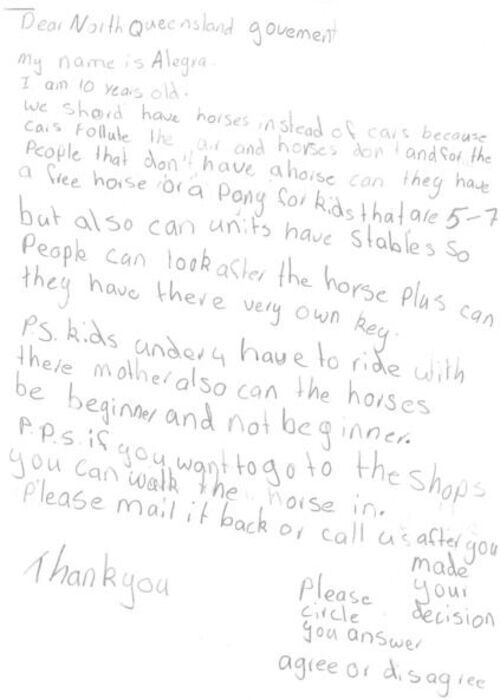 Dear North Queensland govement
my name is Alegra.
I am 10 years old.
we shoard have horses instead of cars because
cars Pollute the air and horses don't and for the
People that don't have a horse can they have
a free horse or a Pony for kids that are 5-7
but also can units have stables so
People can look after the horse Plus can
they have there very own key.
P.S. kids under 4 have to ride with
there mother also can the horses
be beginner and not beginner.
P.P.S. if you want to go to the shops
you can walk the horse in.
Please mail it back or call us after you
made
your
decision
Thankyou
Please
circle
you answer
agree or disagree